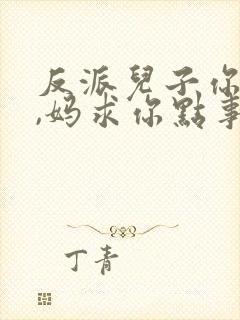 反派兒子你
,妈求你點事
丁青